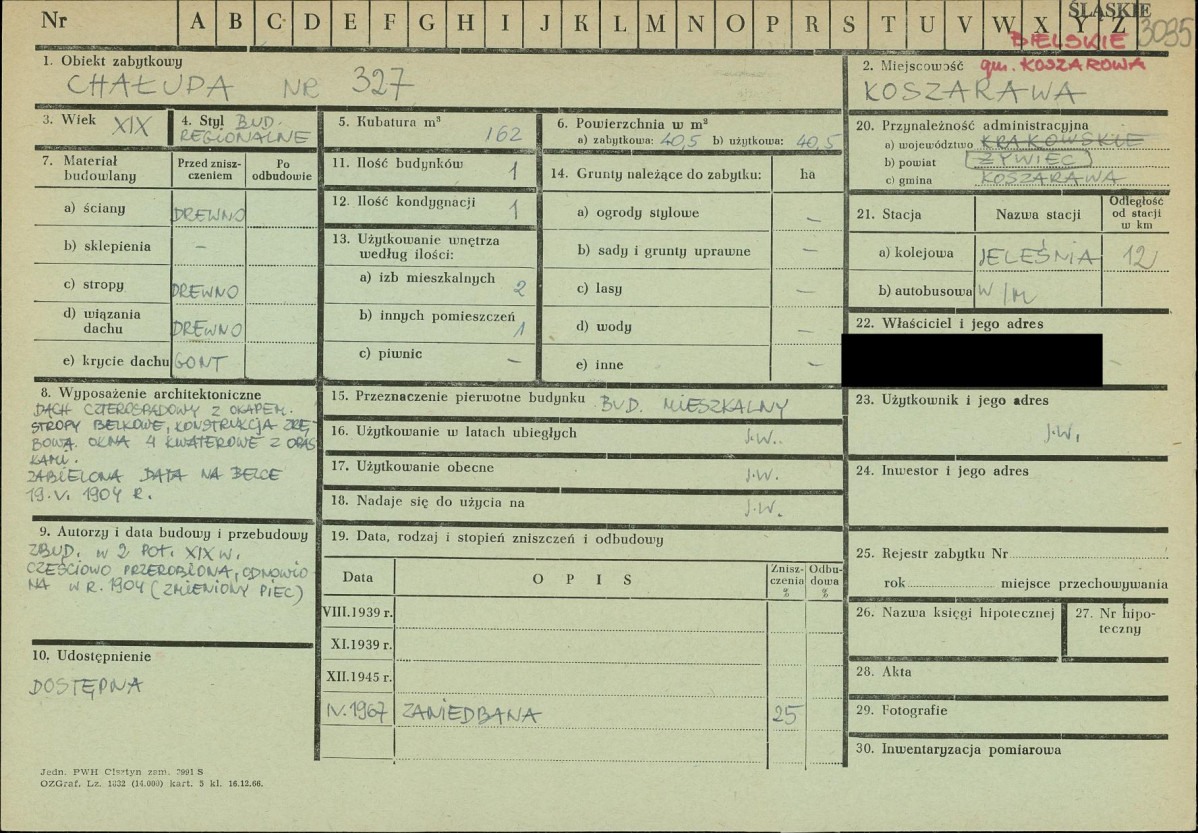 Nr A B C D E F G H I J K L M N O P R S T U V W X Y Z
ŚLĄSKIE
BIELSKIE 3095
1. Obiekt zabytkowy
CHAŁUPA NR 327
2. Miejscowość gm. KOSZAROWA
KOSZARAWA
3. Wiek XIX
4. Styl BUD.
REGIONALNE
5. Kubatura m³
162
6. Powierzchnia w m²
a) zabytkowa: 40,5 b) użytkowa: 40,5
20. Przynależność administracyjna
a) województwo KRAKOWSKIE
b) powiat ŻYWIEC
c) gmina KOSZARAWA
7. Materiał budowlany
Przed znisz-
czeniem
Po
odbudowie
a) ściany DREWNO
b) sklepienia –
c) stropy DREWNO
d) wiązania
dachu DREWNO
e) krycie dachu GONT
11. Ilość budynków 1
12. Ilość kondygnacji 1
13. Użytkowanie wnętrza
według ilości:
a) izb mieszkalnych 2
b) innych pomieszczeń 1
c) piwnic –
14. Grunty należące do zabytku: ha
a) ogrody stylowe –
b) sady i grunty uprawne –
c) lasy –
d) wody –
e) inne –
21. Stacja Nazwa stacji
Odległość
od stacji
w km
a) kolejowa JELEŚNIA 12
b) autobusowa W/M
22. Właściciel i jego adres
8. Wyposażenie architektoniczne
DACH CZTEROSPADOWY Z OKAPEM.
STROPY BELKOWE, KONSTRUKCJA ZRĘ-
BOWA. OKNA 4 KWATEROWE Z OPAS
KAMI.
ZABIELONA DATA NA BELCE
19.V. 1904 R.
15. Przeznaczenie pierwotne budynku BUD. MIESZKALNY
16. Użytkowanie w latach ubiegłych J.W.
17. Użytkowanie obecne J.W.
18. Nadaje się do użycia na J.W.
23. Użytkownik i jego adres
J.W.
24. Inwestor i jego adres
9. Autorzy i data budowy i przebudowy
ZBUD. W 2 POŁ. XIX W.
CZĘŚCIOWO PRZEROBIONA, ODNOWIO
NA W R. 1904 (ZMIENIONY PIEC)
19. Data, rodzaj i stopień zniszczeń i odbudowy
Data O P I S
Znisz-
czenia
%
Odbu-
dowa
%
VIII.1939 r.
XI.1939 r.
XII.1945 r.
IV.1967 ZANIEDBANA 25
25. Rejestr zabytku Nr
rok miejsce przechowywania
26. Nazwa księgi hipotecznej
27. Nr hipo-
teczny
28. Akta
29. Fotografie
30. Inwentaryzacja pomiarowa
10. Udostępnienie
DOSTĘPNA
Jedn. PWH Olsztyn zam. 2991 S
OZGraf. Lz. 1832 (14.000) kart. 5 kl. 16.12.66.